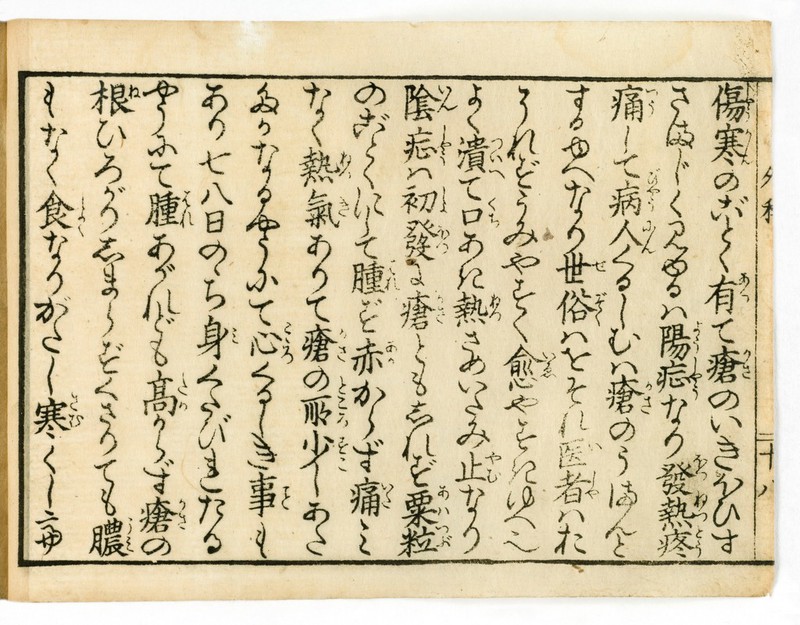 外科 二十八
傷寒のごとく有て瘡のいきほひす
さまじく見ゆるハ陽症なり發熱疼
痛して病人くるしむハ瘡のうまんと
するゆへなり世俗ハをそれ医者ハお
それずうみやすく愈やすきゆへ也
よく潰て口あき熱さめいたみ止なり
陰症ハ初發に瘡ともしれず粟粒
のごとくにて腫ず赤からず痛ミ
なく熱氣ありて瘡の所少しあた
ゝかなるやうにて心くるしき事も
あり七八日のゝち身くたびれたる
やうにて腫あがれども高からず瘡の
根ひろがりしまらずくさりても膿
もなく食なりがたし寒くし